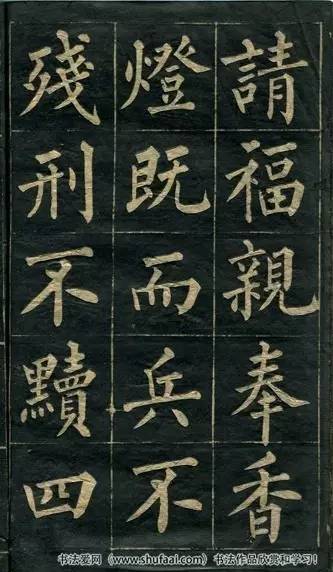 請福親奉香
燈既而兵不
殘刑不黷四
书法爱网（www.shufaai.com）书法作品欣赏和学习！